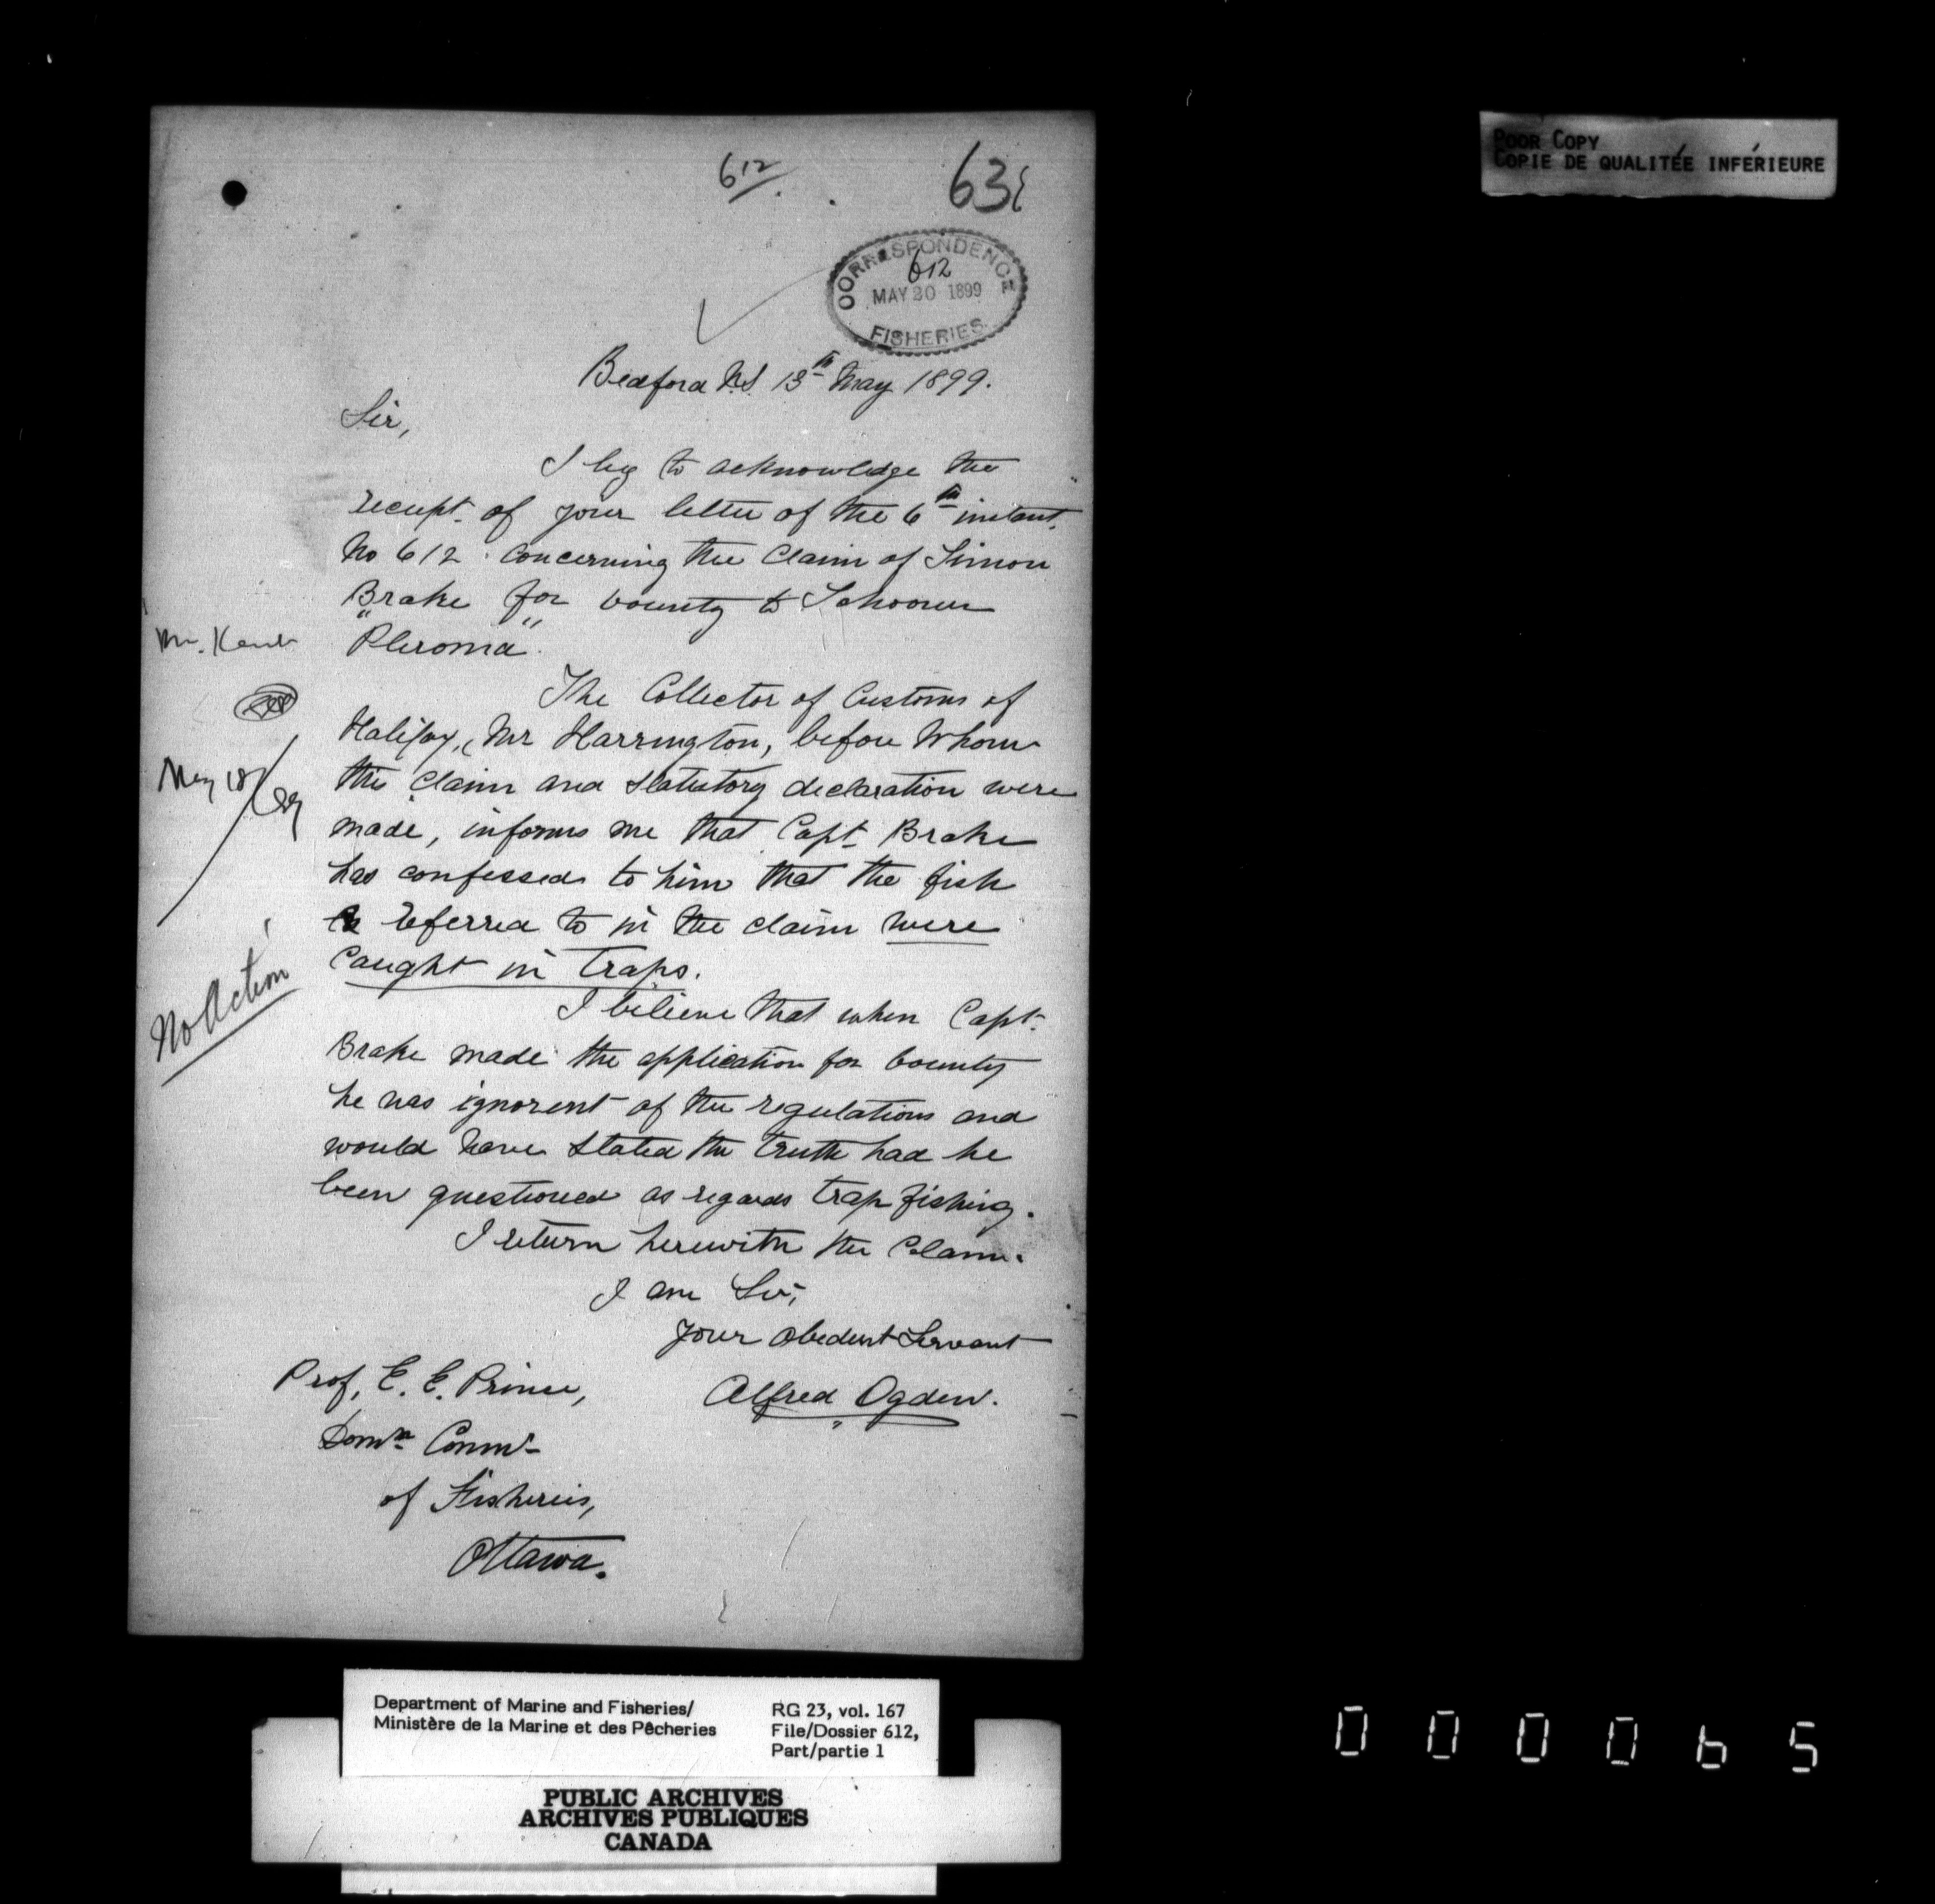 612
63
POOR COPY
COPIE DE QUALITÉE INFÉRIEURE
CORRESPONDENCE
612
MAY 20 1899
FISHERIES
Bedford N.S. 13th May 1899.
Sir,
I beg to acknowledge the
receipt of your letter of the 6th instant.
No 612 concerning the Claim of Simon
Brake for bounty to Schooner
"Pleroma".
Mr. Kent
The Collector of Customs of
Halifax, Mr Harrington, before Whom
the claim and statutory declaration were
May 18/99
made, informs me that Capt. Brake
has confessed to him that the fish
referred to in the claim were
caught in traps.
No Action
I believe that when Capt.
Brake made the application for bounty
he was ignorent of the regulations and
would have stated the truth had he
been questioned as regards trap fishing.
I return herewith the Claim.
I am Sir,
your Obedient Servant
Alfred Ogden.
Prof. E. E. Prince,
Domn Commr
of Fisheries,
Ottawa.
Department of Marine and Fisheries/
Ministère de la Marine et des Pêcheries
RG 23, vol. 167
File/Dossier 612,
Part/partie 1
PUBLIC ARCHIVES
ARCHIVES PUBLIQUES
CANADA
000065